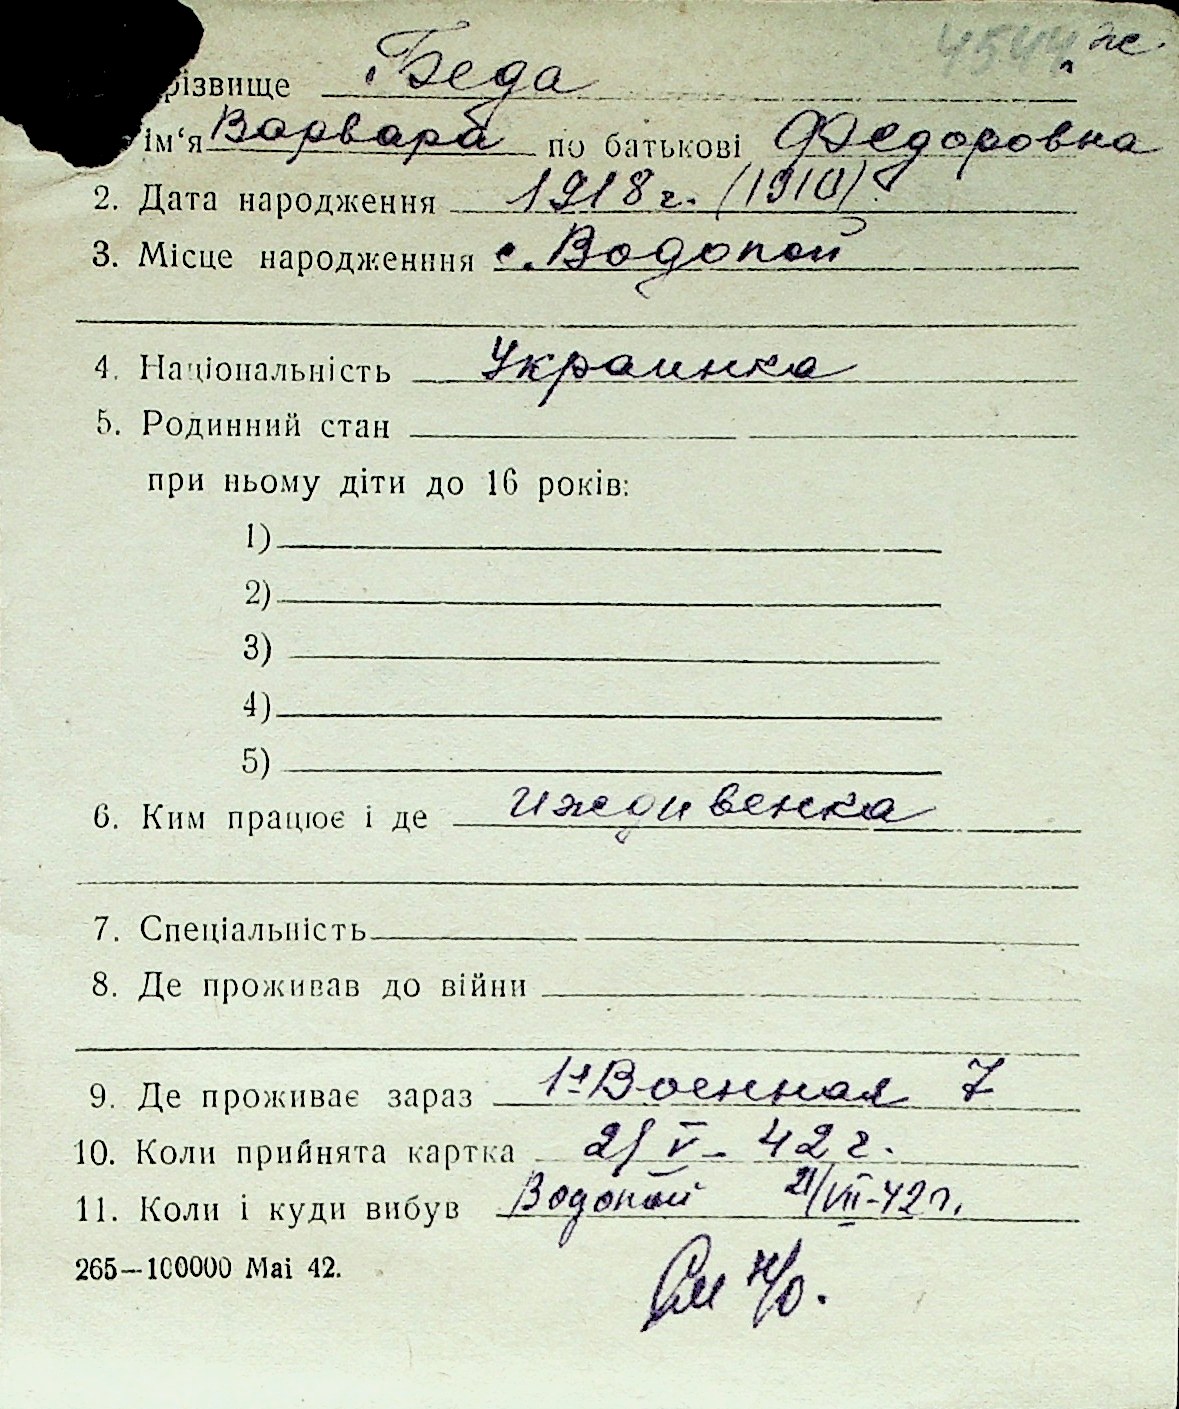 4544 ж
різвище Беда
ім‘я Варвара по батькові Федоровна
2. Дата народження 1918 г. (1910)
3. Місце народженння с. Водопой
4. Національність Украинка
5. Родинний стан
при ньому діти до 16 років:
1)
2)
3)
4)
5)
6. Ким працює і де иждивенка
7. Спеціальність
8. Де проживав до війни
9. Де проживає зараз 1я Военная 7
10. Коли прийнята картка 21 V - 42 г.
11. Коли і куди вибув Водопой 21/VII-42 г.
265—100000 Mai 42.
См н/о.